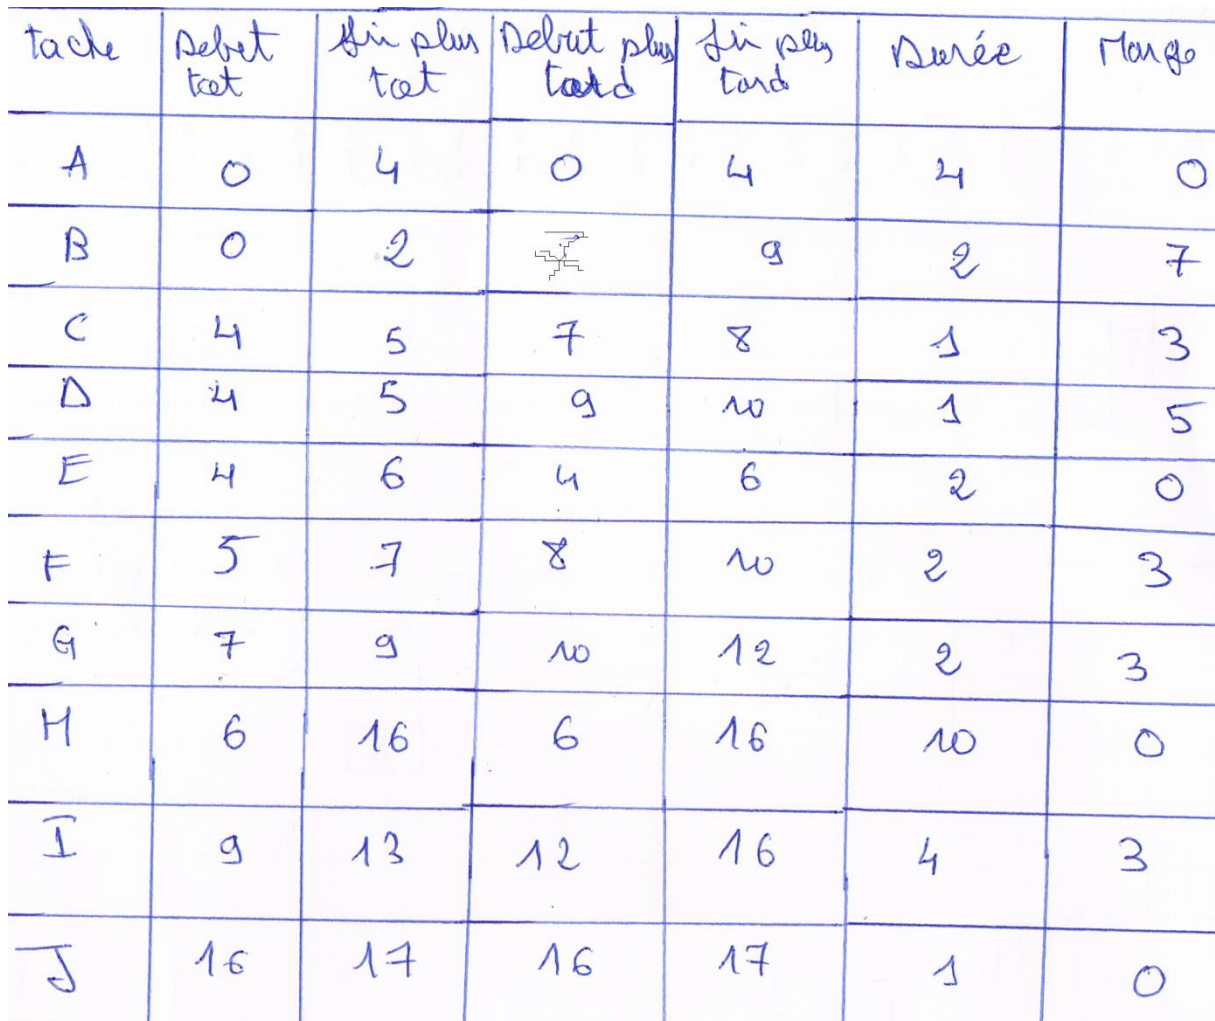 tache Debet tot fin plus tot Debut plus tard fin plus tard Durée Marge
A 0 4 0 4 4 0
B 0 2 9 2 7
C 4 5 7 8 1 3
D 4 5 9 10 1 5
E 4 6 4 6 2 0
F 5 7 8 10 2 3
G 7 9 10 12 2 3
H 6 16 6 16 10 0
I 9 13 12 16 4 3
J 16 17 16 17 1 0